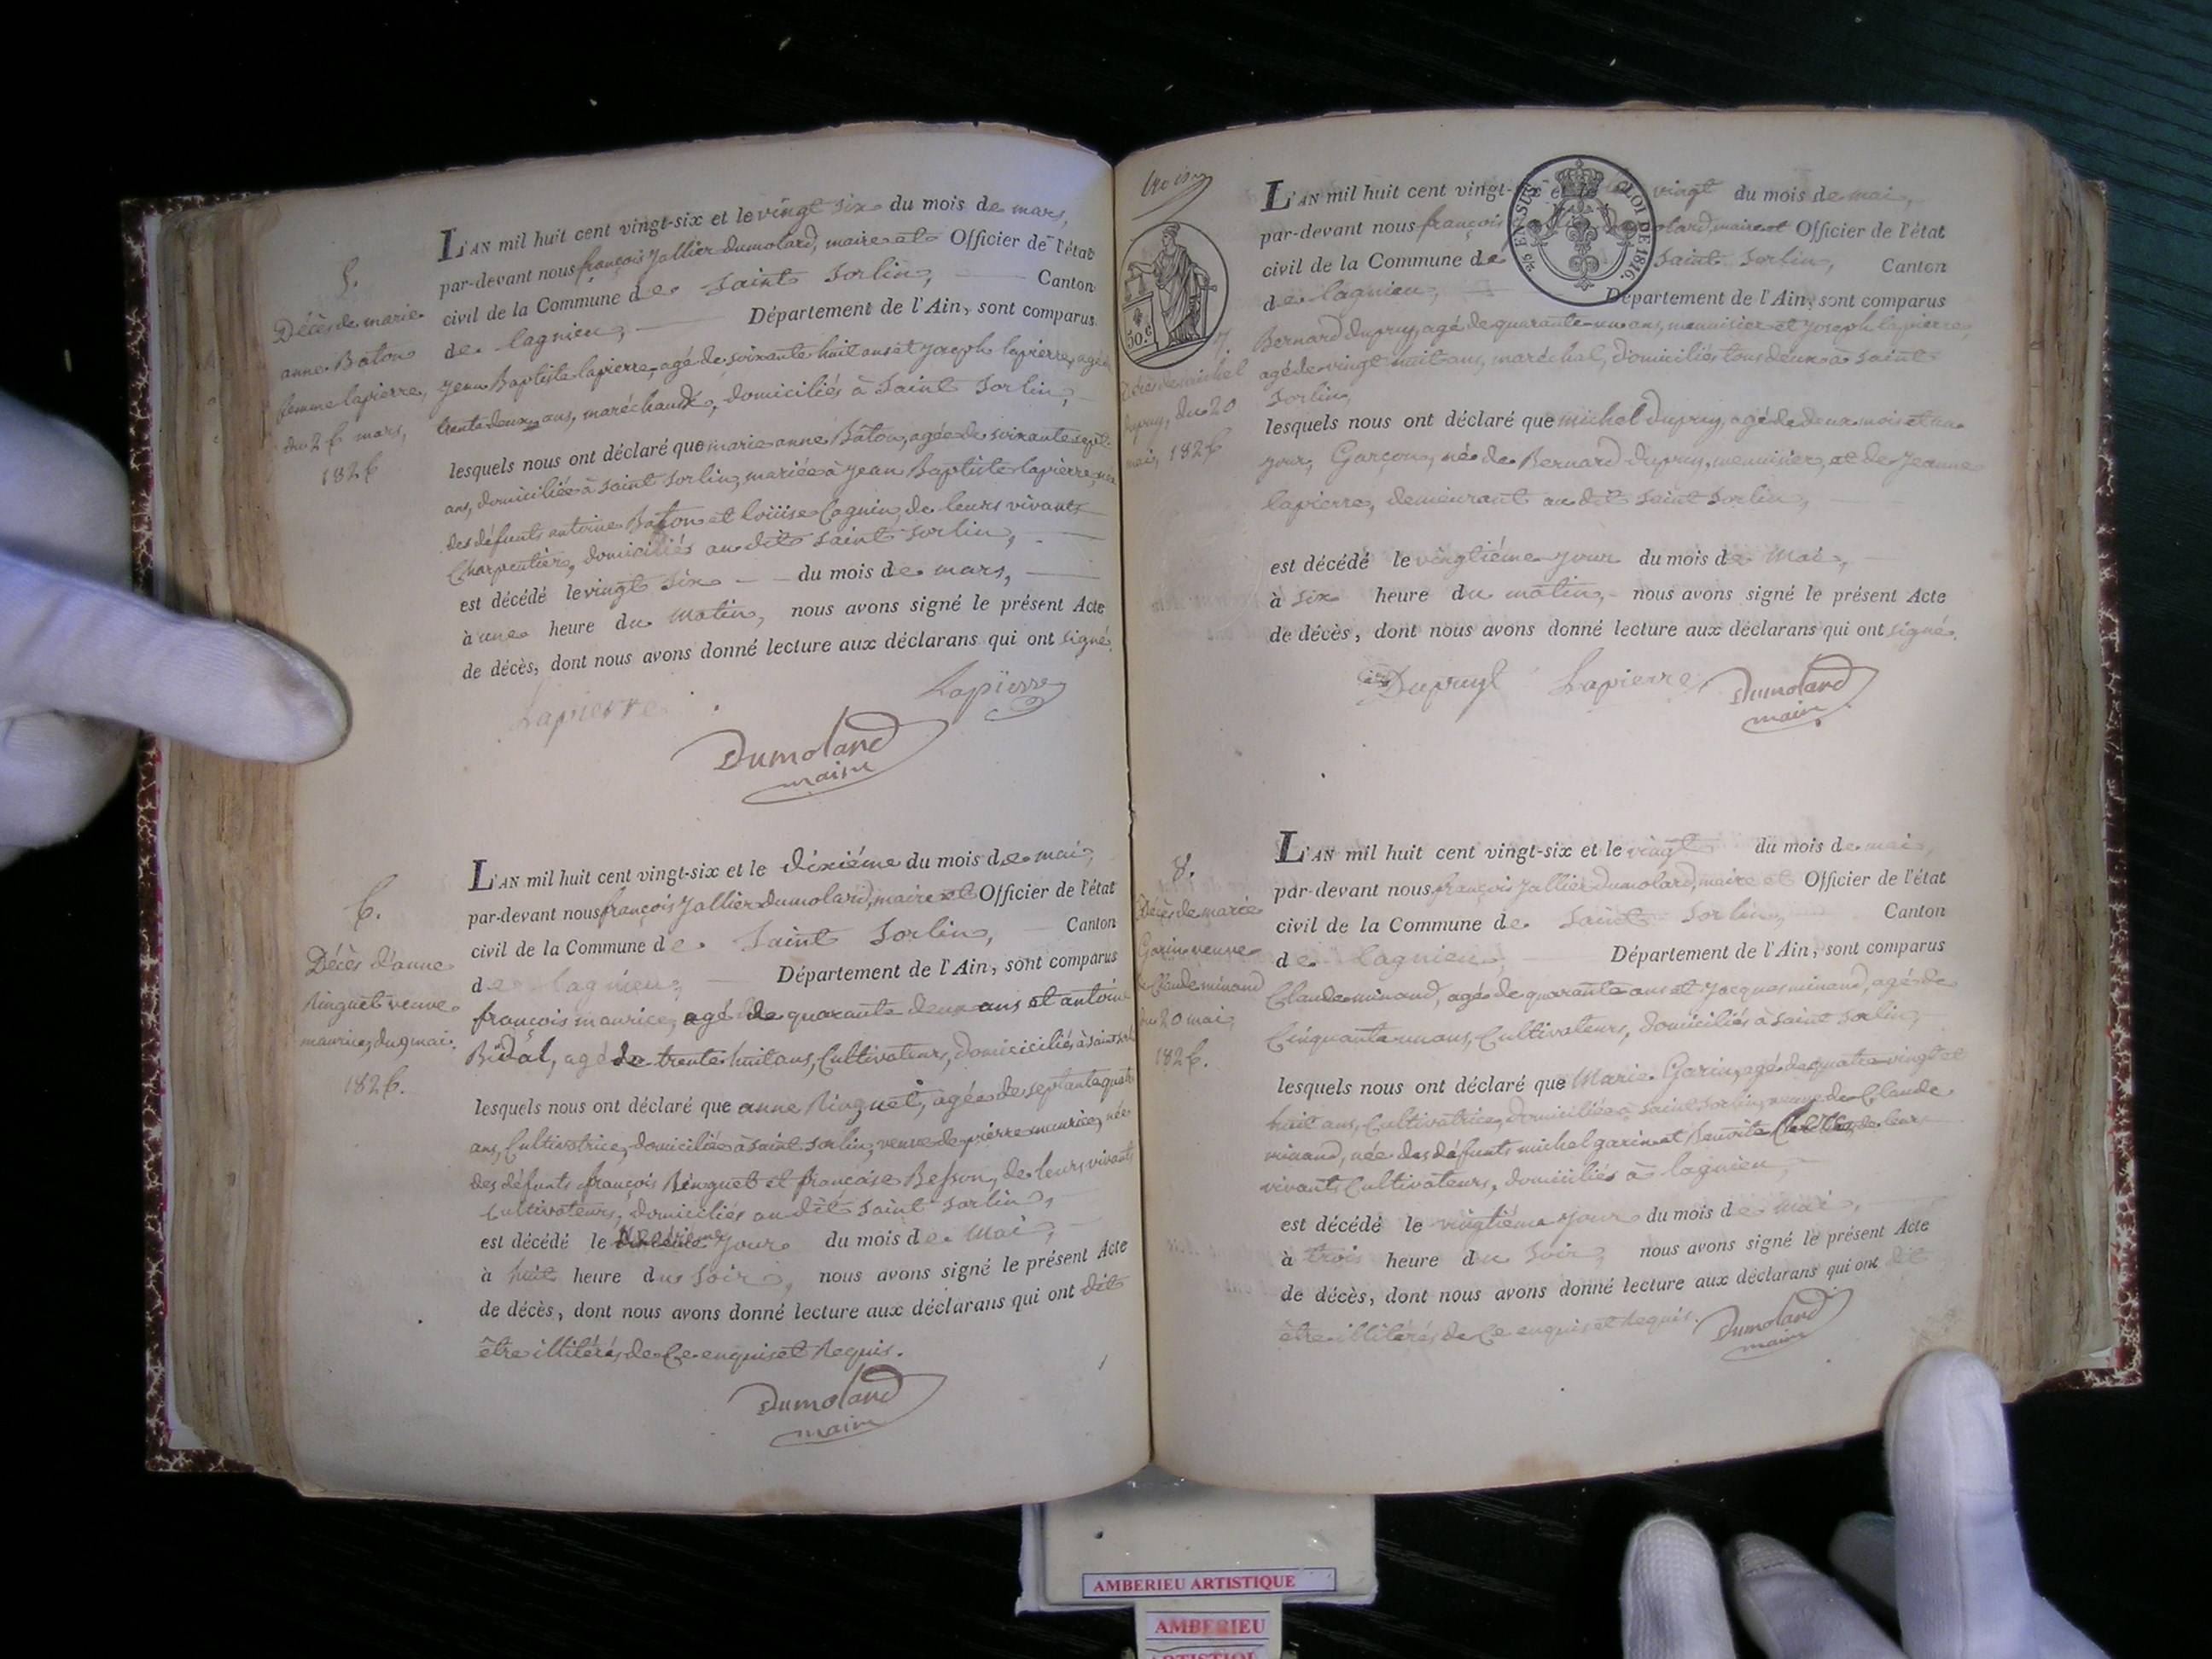 5.
Décès de marie
anne Bâton
femme lapierre,
du 26 mars,
1826
L'AN mil huit cent vingt-six et le vingt six du mois de mars,
par-devant nous françois Jallier Dumolard, maire et Officier de l'état
civil de la Commune de Saint Sorlin, Canton
de lagnieu, Département de l'Ain, sont comparus
jean Baptiste lapierre, agé de soixante huit ans et joseph lapierre, agé de
trente deux ans, maréchaux, domiciliés à Saint Sorlin,
lesquels nous ont déclaré que marie anne Bâton, agée de soixante sept
ans, domiciliée à saint Sorlin, mariée à jean Baptiste lapierre, née
des défunts antoine Bâton et loüise Cagnin, de leurs vivants
Charpentier, domiciliés au dit saint Sorlin,
est décédé le vingt six du mois de mars,
à une heure du matin, nous avons signé le présent Acte
de décès, dont nous avons donné lecture aux déclarans qui ont signé.
Lapierre Lapierre
Dumolard
maire
6.
Décès d'anne
Ringuet veuve
maurice, du 9 mai,
1826.
L'AN mil huit cent vingt-six et le dixiéme du mois de mai,
par-devant nous françois Jallier Dumolard, maire et Officier de l'état
civil de la Commune de Saint Sorlin, Canton
de lagnieu, Département de l'Ain, sont comparus
françois maurice, agé de quarante deux ans et antoine
Bidal, agé de trente huit ans, Cultivateurs, domiciciliés à saint Sorlin
lesquels nous ont déclaré que anne Ringuet, agée de septante quatre
ans, Cultivatrice, domiciliée à saint Sorlin, veuve de pierre maurice, née
des défunts françois Ringuet et françoise Besson, de leurs vivants
Cultivateurs, domiciliés au dit saint Sorlin,
est décédé le jour du mois de Mai,
à huit heure du soir, nous avons signé le présent Acte
de décès, dont nous avons donné lecture aux déclarans qui ont dit
être illitérés de Ce enquis et Requis.
Dumolard
maire
trois
50.c
7
Décès de michel
dupruy, du 20
mai, 1826
EN SUS LOI DE 1816.
L'AN mil huit cent vingt-six et le vingt du mois de mai,
par-devant nous françois Dumolard, maire et Officier de l'état
civil de la Commune de Saint Sorlin, Canton
de lagnieu, Département de l'Ain, sont comparus
Bernard dupruy, agé de quarante un ans, menuisier et joseph lapierre,
agé de vingt huit ans, maréchal, domiciliés tous deux à saint
Sorlin,
lesquels nous ont déclaré que michel dupruy, agé de deux mois et un
jour, Garçon, né de Bernard dupruy, menuisier, et de jeanne
lapierre, demeurant au dit saint Sorlin,
est décédé le vingtiéme jour du mois de Mai,
à six heure du matin, nous avons signé le présent Acte
de décès, dont nous avons donné lecture aux déclarans qui ont signé.
Dupruyt Lapierre Dumolard
maire
8.
Décès de marie
Garin veuve
de Claude minand
du 20 mai,
1826.
L'AN mil huit cent vingt-six et le vingt du mois de mai,
par-devant nous françois Jallier Dumolard, maire et Officier de l'état
civil de la Commune de Saint Sorlin, Canton
de lagnieu, Département de l'Ain, sont comparus
Claude minand, agé de quarante ans et jacques minand, agé de
Cinquante un ans, Cultivateurs, domiciliés à saint Sorlin,
lesquels nous ont déclaré que Marie Garin, agé de quatre vingt et
huit ans, Cultivatrice, domiciliée à saint Sorlin, veuve de Claude
minand, née des défunts michel garin et Benoîte de leurs
vivants Cultivateurs, domiciliés à lagnieu,
est décédé le vingtiéme jour du mois de mai,
à trois heure du Soir, nous avons signé le présent Acte
de décès, dont nous avons donné lecture aux déclarans qui ont dit
être illitérés de Ce enquis et Requis.
Dumolard
maire
AMBERIEU ARTISTIQUE
AMBERIEU
ARTISTIQUE